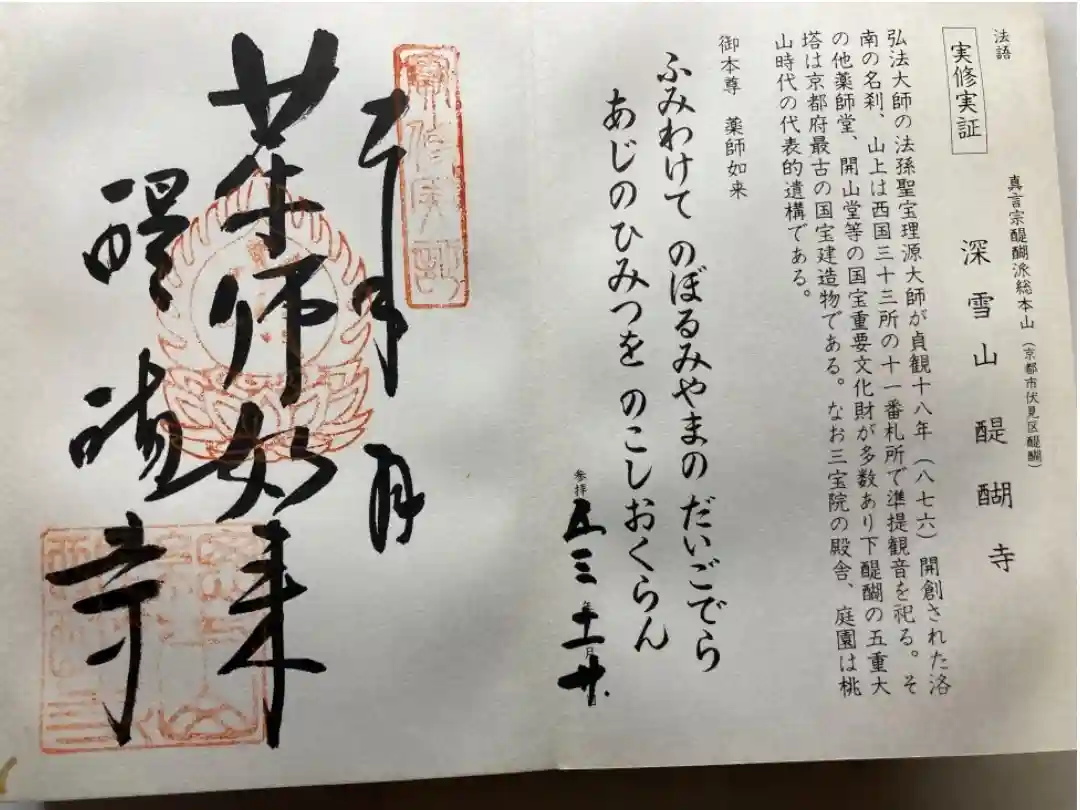 法語
実修実証
真言宗醍醐派総本山(京都市伏見区醍醐)
深雪山醍醐寺
弘法大師の法孫聖宝理源大師が貞観十八年(八七六)開創された洛
南の名刹、山上は西国三十三所の十一番札所で準提観音を祀る。そ
の他薬師堂、開山堂等の国宝重要文化財が多数あり下醍醐の五重大
塔は京都府最古の国宝建造物である。なお三宝院の殿舎、庭園は桃
山時代の代表的遺構である。
御本尊 薬師如来
ふみわけて のぼるみやまの だいごでら
あじのひみつを のこしおくらん
参拝五三年十一月廿日
実修実証
奉拝
薬師如来
醍醐寺